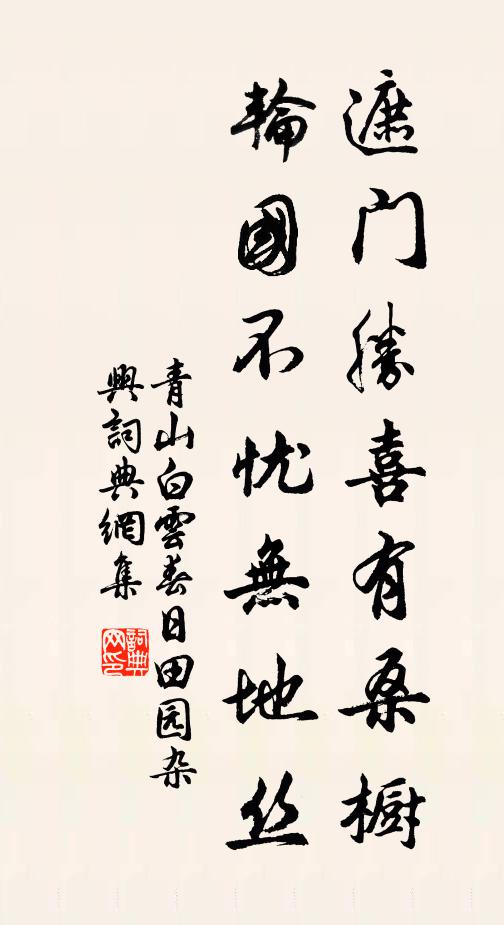 遮门勝喜有桑橱
輪國不忧無地丝
青山白雲春日田园杂
興詞典網集
詞典
网印